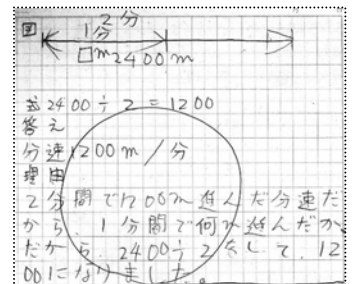 図
2分
1分
□m
2400m
式2400÷2=1200
答え
分速1200m/分
理由
2分間で1200m進んだ分速だ
から、1分間で何m進んだか
だから、2400÷2をして、12
00になりました。